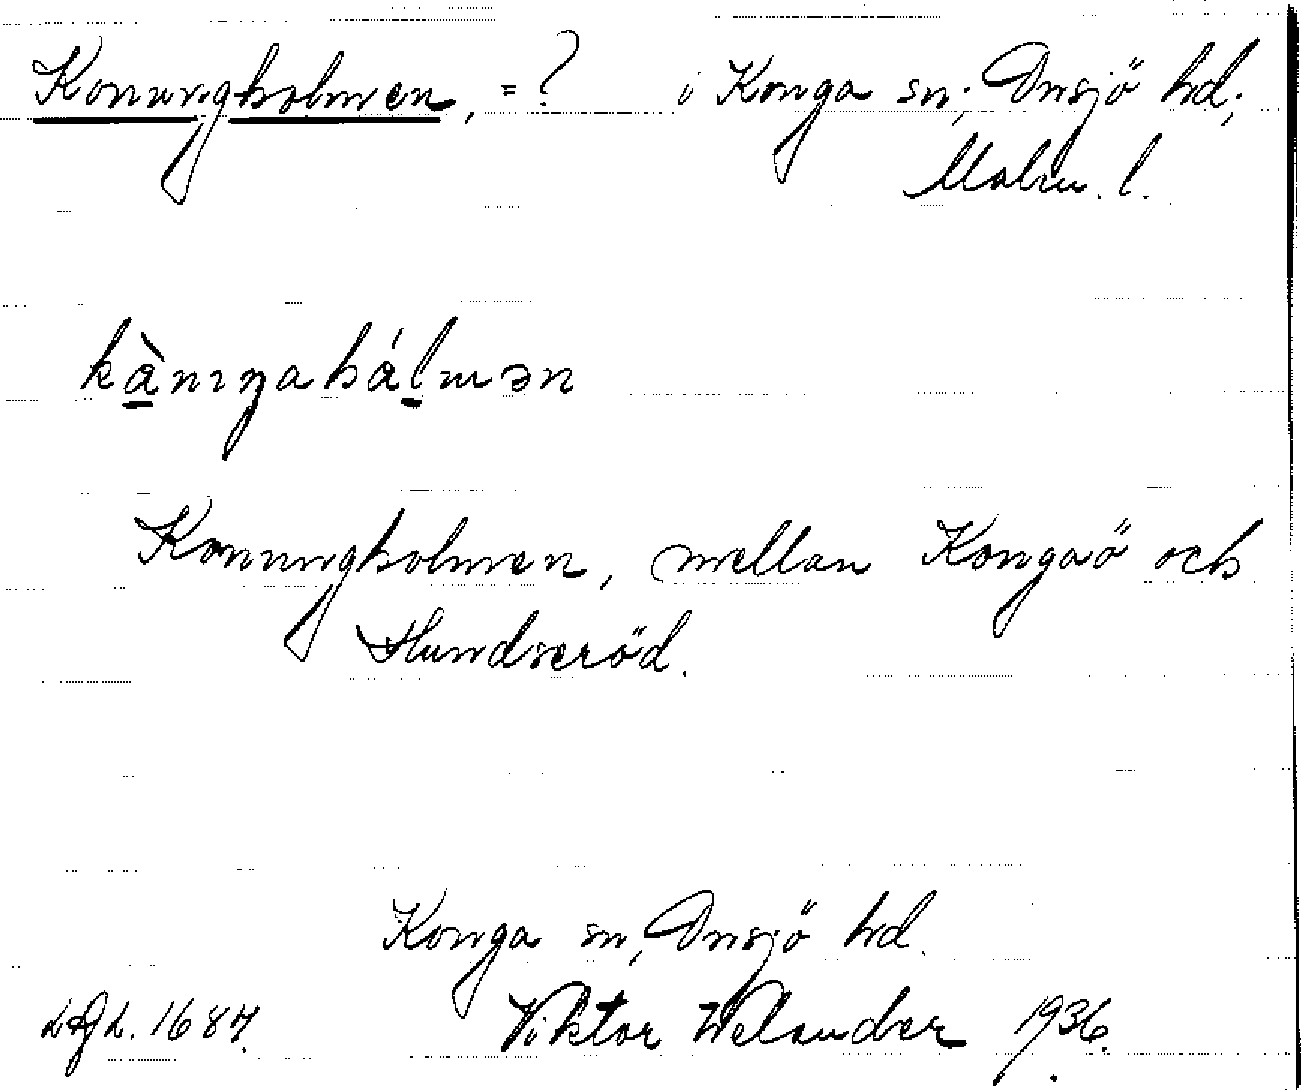 Konungholmen, = ? i Konga sn; Onsjö hd;
Malm. l.
kànıŋahálmən
Konungholmen, mellan Kongaö och
Hundseröd.
Konga sn, Onsjö hd.
Viktor Welander 1936.